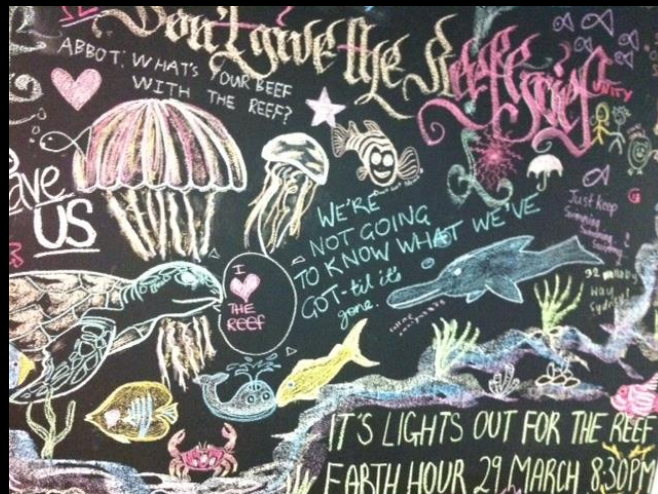 Don't give the Reef Grief
ABBOT: WHAT'S YOUR BEEF
WITH THE REEF?
UNITY
ave
US
WE'RE
NOT GOING
TO KNOW WHAT WE'VE
GOT-til it's
gone.
I
THE
REEF
Just keep
Swimming
Swimming
Swimming
IT'S LIGHTS OUT FOR THE REEF
EARTH HOUR 29 MARCH 8:30PM